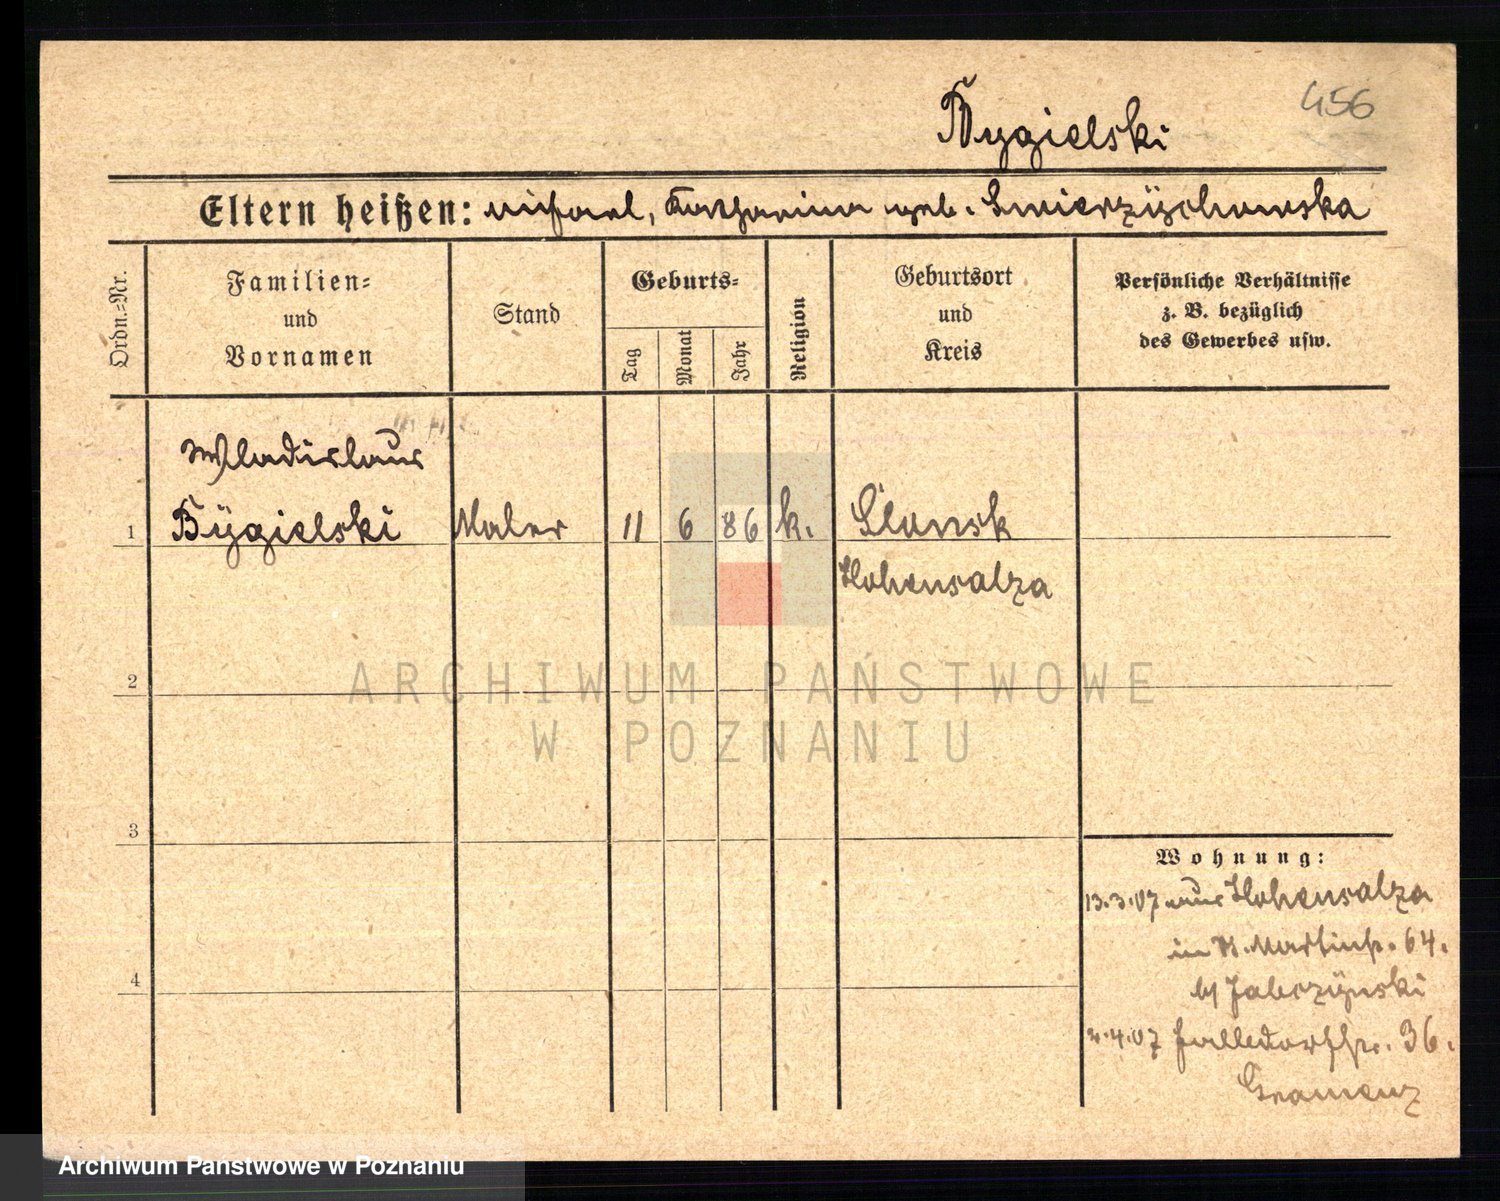 456
Bygielski
Eltern heißen: Michael, Katharina geb. Swierzychowska
Ordn.-Nr.
Familien-
und
Vornamen
Stand
Geburts-
Tag
Monat
Jahr
Religion
Geburtsort
und
Kreis
Persönliche Verhältnisse
z. B. bezüglich
des Gewerbes usw.
Wladislaus
1 Bygielski Maler 11 6 86 k. Slonsk
Hohensalza
2
3
4
Wohnung:
13.3.07 aus Hohensalza
in St. Martinstr. 64.
b/ Jaberzynski
2.4.07 Halldorfstr. 36.
ARCHIWUM PAŃSTWOWE
W POZNANIU
Archiwum Państwowe w Poznaniu